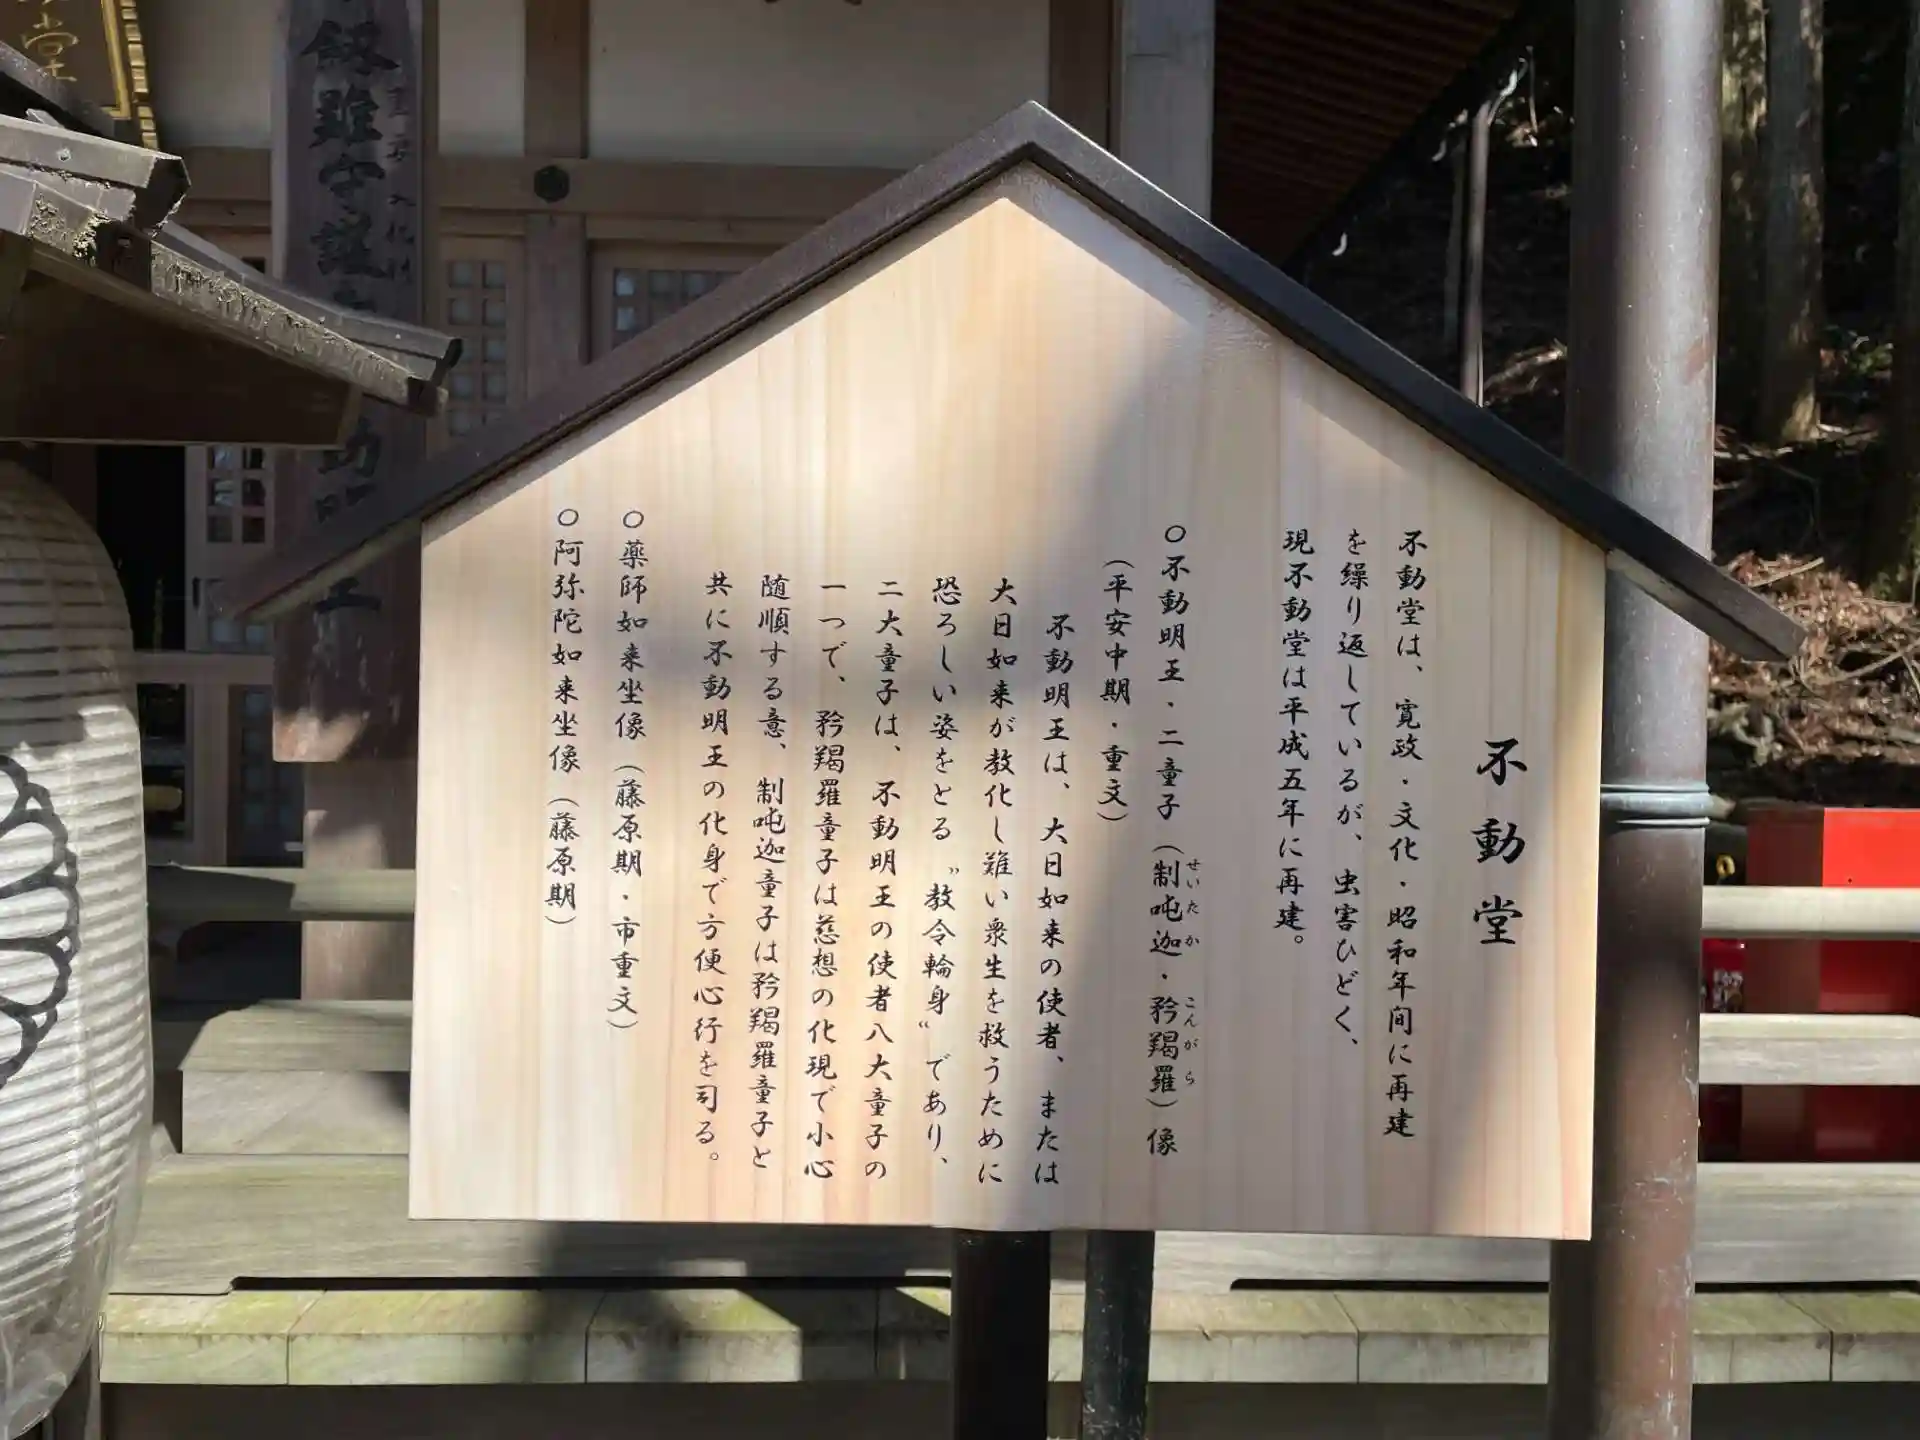 不動堂
不動堂は、寛政・文化・昭和年間に再建
を繰り返しているが、虫害ひどく、
現不動堂は平成五年に再建。
○不動明王・二童子（制吨迦・矜羯羅）像
せいたか
こんがら
（平安中期・重文）
不動明王は、大日如来の使者、または
大日如来が教化し難い衆生を救うために
恐ろしい姿をとる〝教令輪身〟であり、
二大童子は、不動明王の使者八大童子の
一つで、矜羯羅童子は慈想の化現で小心
随順する意、制吨迦童子は矜羯羅童子と
共に不動明王の化身で方便心行を司る。
○薬師如来坐像（藤原期・市重文）
○阿弥陀如来坐像（藤原期）
堂